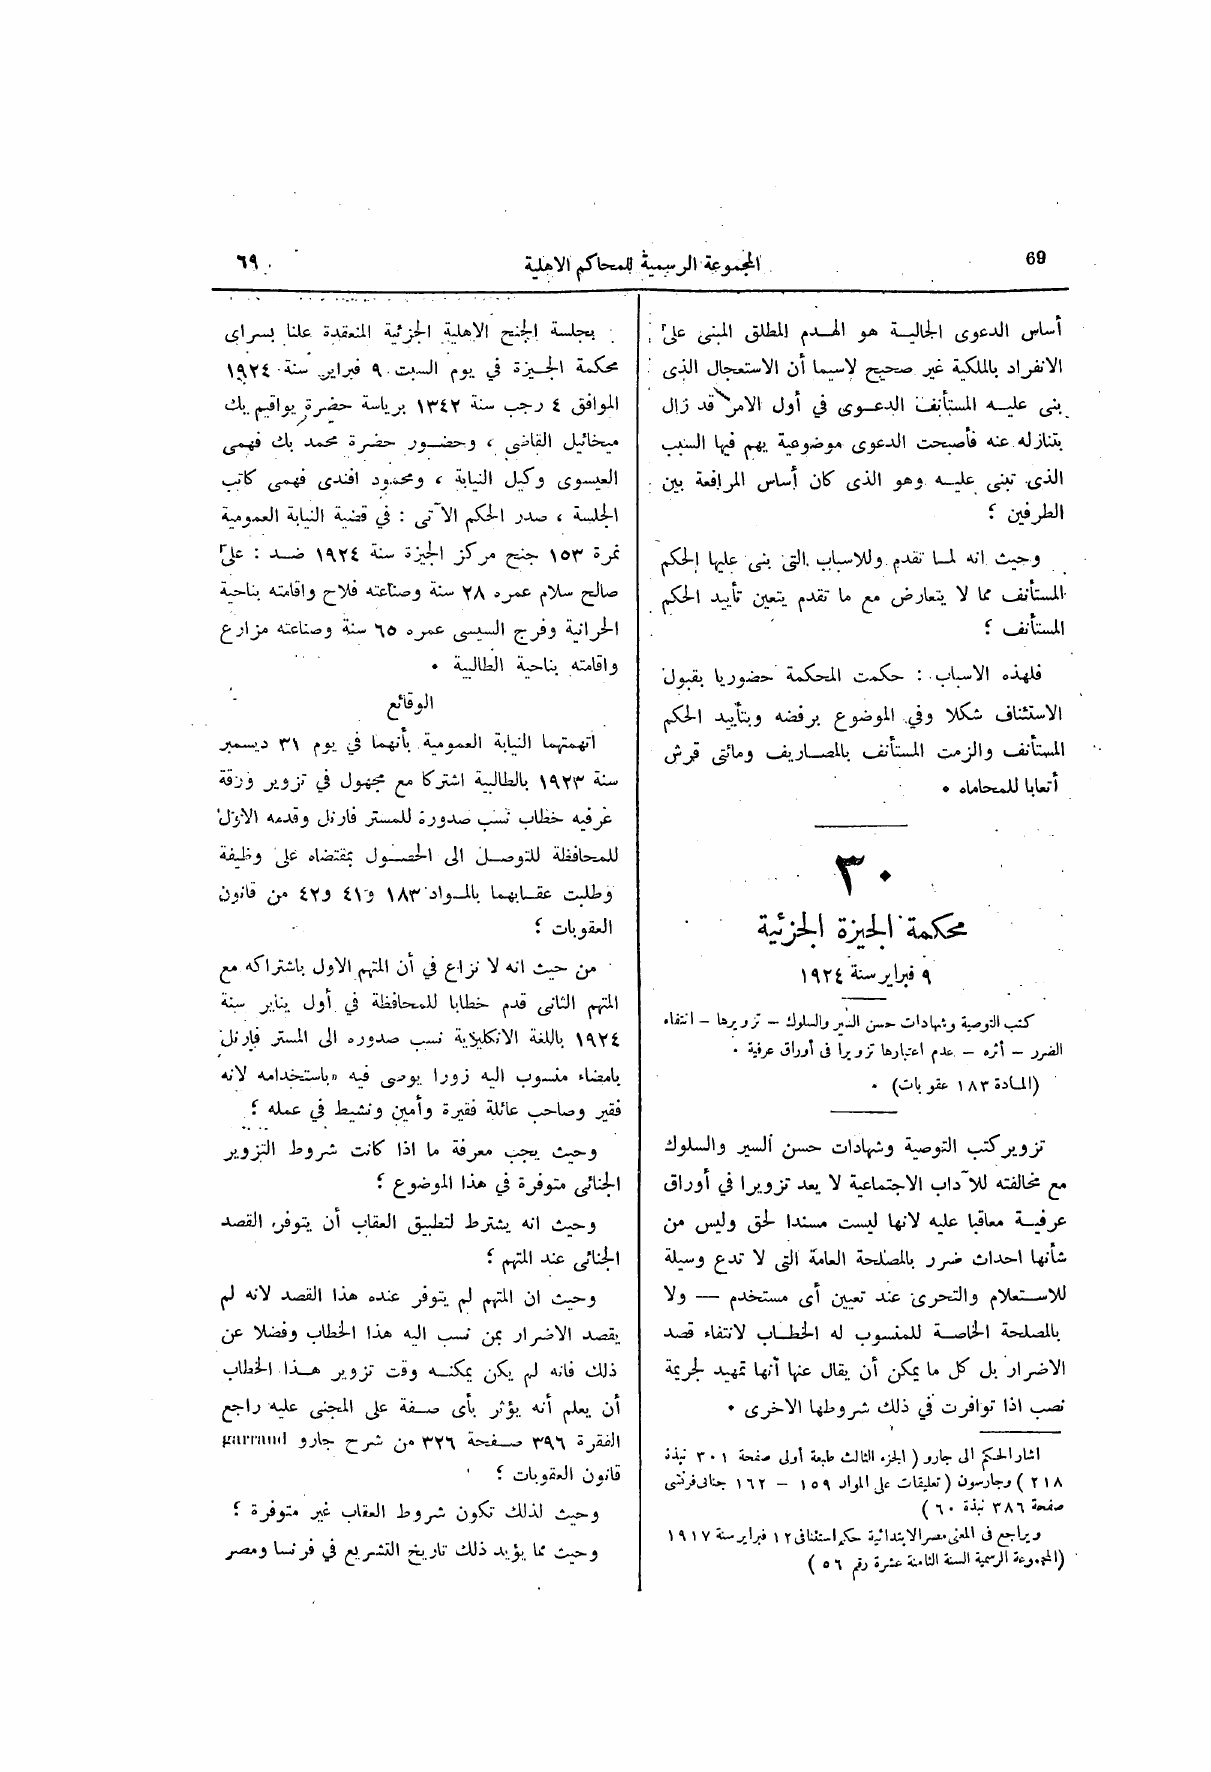 69
المجموعة الرسمية للمحاكم الاهلية
٦٩
أساس الدعوى الحالية هو الهدم المطلق المبنى على
الانفراد بالملكية غير صحيح لاسيما أن الاستعجال الذى
بنى عليه المستأنف الدعوى في أول الامر قد زال
بتنازله عنه فأصبحت الدعوى موضوعية يهم فيها السبب
الذى تبنى عليه وهو الذى كان أساس المرافعة بين
الطرفين ؛
وحيث انه لما تقدم وللاسباب التى بنى عليها الحكم
المستأنف مما لا يتعارض مع ما تقدم يتعين تأييد الحكم
المستأنف ؛
فلهذه الاسباب : حكمت المحكمة حضوريا بقبول
الاستئناف شكلا وفي الموضوع برفضه وبتأييد الحكم
المستأنف والزمت المستأنف بالمصاريف ومائتى قرش
أتعابا للمحاماه .
٣٠
محكمة الجيزة الجزئية
٩ فبراير سنة ١٩٢٤
كتب التوصية وشهادات حسن السير والسلوك – تزويرها – انتفاء
الضرر – أثره – عدم اعتبارها تزويرا فى أوراق عرفية .
(المادة ١٨٣ عقوبات) .
تزوير كتب التوصية وشهادات حسن السير والسلوك
مع مخالفته للآداب الاجتماعية لا يعد تزويرا في أوراق
عرفية معاقبا عليه لانها ليست مسندا لحق وليس من
شأنها احداث ضرر بالمصلحة العامة التى لا تدع وسيلة
للاستعلام والتحرى عند تعيين أى مستخدم — ولا
بالمصلحة الخاصة للمنسوب له الخطاب لانتفاء قصد
الاضرار بل كل ما يمكن أن يقال عنها أنها تمهيد لجريمة
نصب اذا توافرت في ذلك شروطها الاخرى .
اشار الحكم الى جارو ( الجزء الثالث طبعة أولى صفحة ٣٠١ نبذة
٢١٨ ) وجارسون ( تعليقات على المواد ١٥٩ – ١٦٢ جنائى فرنسى
صفحة ٣٨٦ نبذة ٦٠ )
ويراجع فى المعنى مصر الابتدائية حكم استئنافى ١٢ فبراير سنة ١٩١٧
(المجموعة الرسمية السنة الثامنة عشرة رقم ٥٦ )
بجلسة الجنح الاهلية الجزئية المنعقدة علنا بسراى
محكمة الجيزة في يوم السبت ٩ فبراير سنة ١٩٢٤
الموافق ٤ رجب سنة ١٣٤٢ برياسة حضرة يواقيم بك
ميخائيل القاضى ، وحضور حضرة محمد بك فهمى
العيسوى وكيل النيابة ، ومحمود افندى فهمى كاتب
الجلسة ، صدر الحكم الآتى : في قضية النيابة العمومية
نمرة ١٥٣ جنح مركز الجيزة سنة ١٩٢٤ ضد : على
صالح سلام عمره ٢٨ سنة وصناعته فلاح واقامته بناحية
الحرانية وفرج السيسى عمره ٦٥ سنة وصناعته مزارع
واقامته بناحية الطالبية .
الوقائع
اتهمتهما النيابة العمومية بأنهما في يوم ٣١ ديسمبر
سنة ١٩٢٣ بالطالبية اشتركا مع مجهول في تزوير ورقة
عرفيه خطاب نسب صدورة للمستر فارنل وقدمه الاول
للمحافظة للتوصل الى الحصول بمقتضاه على وظيفة
وطلبت عقابهما بالمواد ١٨٣ و٤١ و٤٢ من قانون
العقوبات ؛
من حيث انه لا نزاع في أن المتهم الاول باشتراكه مع
المتهم الثانى قدم خطابا للمحافظة في أول يناير سنة
١٩٢٤ باللغة الانكليزية نسب صدوره الى المستر فارنل
بامضاء منسوب اليه زورا يوصى فيه «باستخدامه لانه
فقير وصاحب عائلة فقيرة وأمين ونشيط في عمله ؛
وحيث يجب معرفة ما اذا كانت شروط التزوير
الجنائى متوفرة في هذا الموضوع ؛
وحيث انه يشترط لتطبيق العقاب أن يتوفر القصد
الجنائى عند المتهم ؛
وحيث ان المتهم لم يتوفر عنده هذا القصد لانه لم
يقصد الاضرار بمن نسب اليه هذا الخطاب وفضلا عن
ذلك فانه لم يكن يمكنه وقت تزوير هذا الخطاب
أن يعلم أنه يؤثر بأى صفة على المجنى عليه راجع
الفقرة ٣٩٦ صفحة ٣٢٦ من شرح جارو garraud
قانون العقوبات ؛
وحيث لذلك تكون شروط العقاب غير متوفرة ؛
وحيث مما يؤيد ذلك تاريخ التشريع في فرنسا ومصر